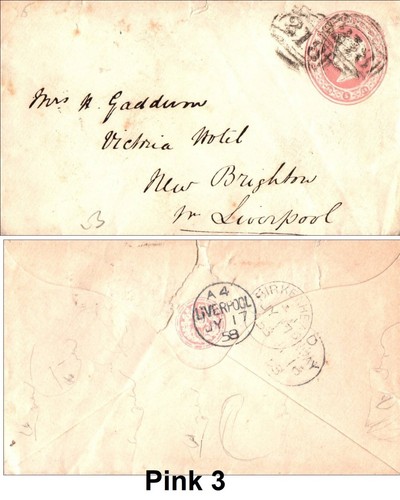 Mrs H. Gaddum
Victoria Hotel
New Brighton
nr Liverpool
B
A4
LIVERPOOL
JY 17
58
BIRKENHEAD
Pink 3